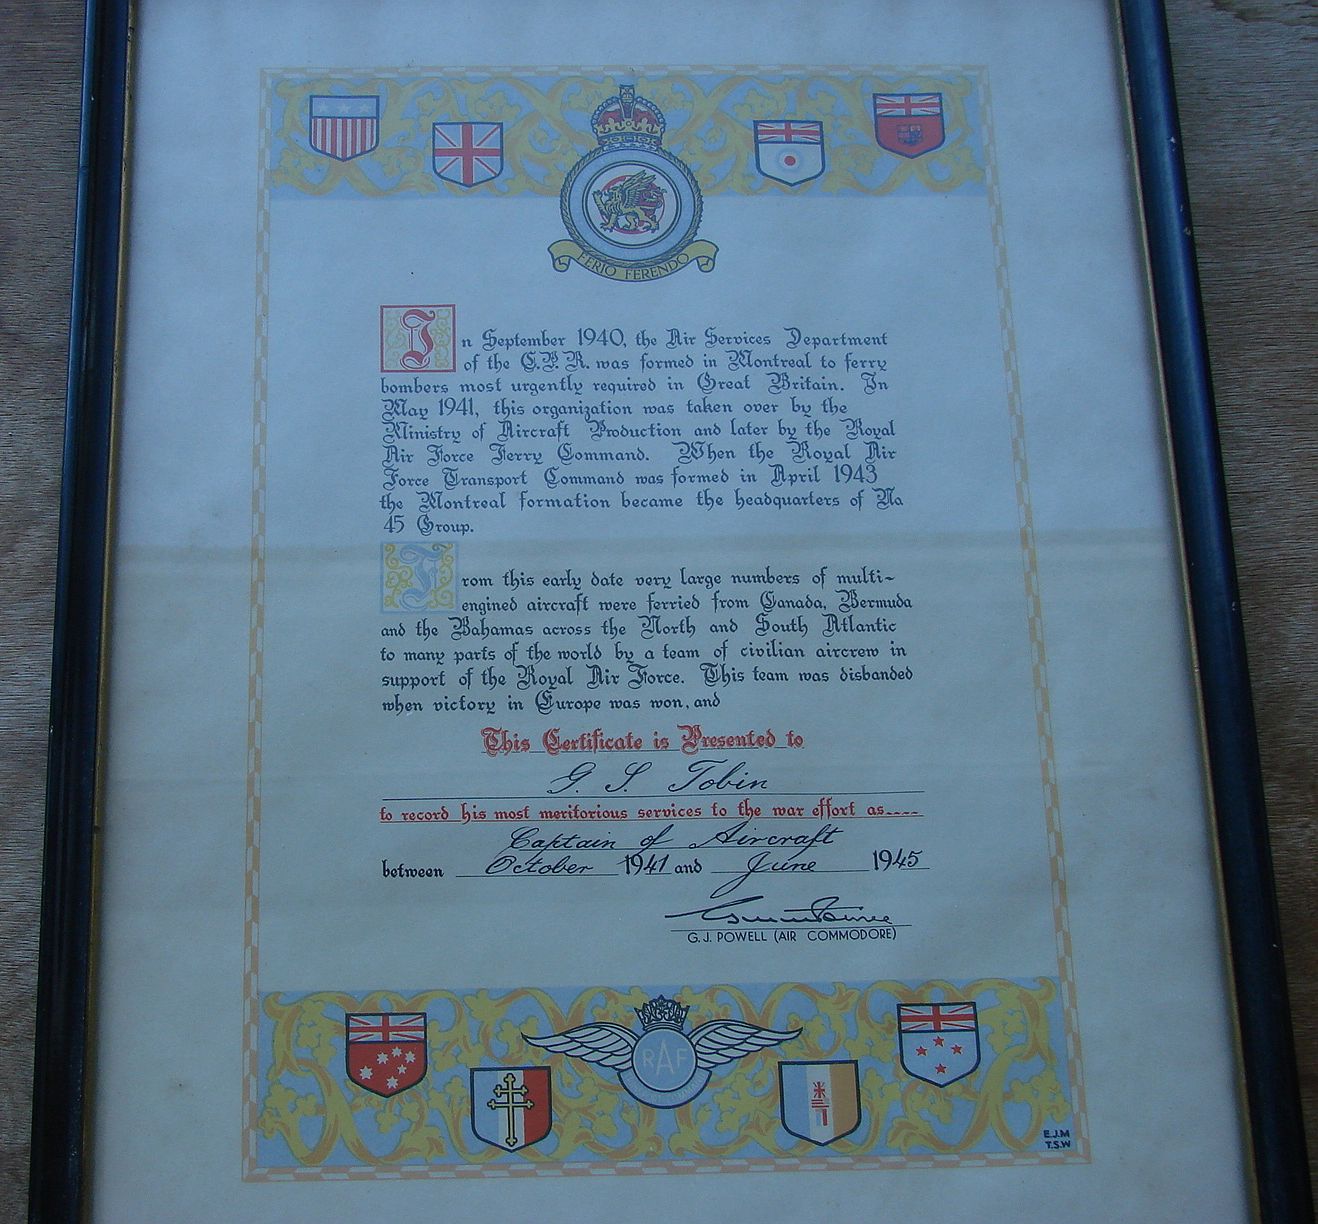 FERIO FERENDO
In September 1940, the Air Services Department
of the C.P.R. was formed in Montreal to ferry
bombers most urgently required in Great Britain. In
May 1941, this organization was taken over by the
Ministry of Aircraft Production and later by the Royal
Air Force Ferry Command. When the Royal Air
Force Transport Command was formed in April 1943
the Montreal formation became the headquarters of No
45 Group.
From this early date very large numbers of multi-
engined aircraft were ferried from Canada, Bermuda
and the Bahamas across the North and South Atlantic
to many parts of the world by a team of civilian aircrew in
support of the Royal Air Force. This team was disbanded
when victory in Europe was won, and
This Certificate is Presented to
G. S. Tobin
to record his most meritorious services to the war effort as....
Captain of Aircraft
between October 1941 and June 1945
G. J. POWELL (AIR COMMODORE)
RAF
E.J.M
T.S.W